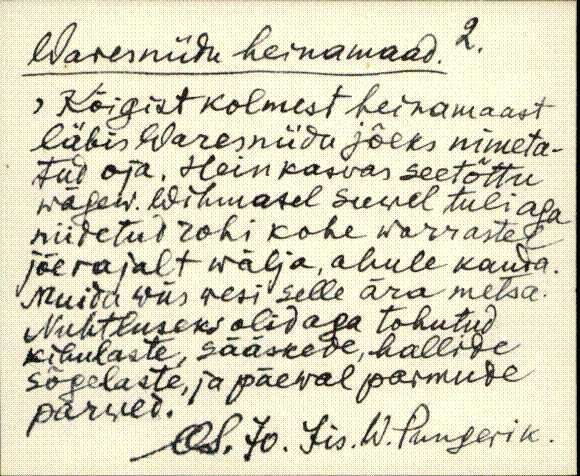 Waresniidu heinamaad. 2.
, Kõigist kolmest heinamaast
läbis Waresniidu jõeks nimeta-
tud oja. Hein kasvas seetõttu
wägew. Wihmasel suwel tuli aga
niidetud rohi kohe warrastel
jõerajalt wälja, ahule kanda.
Muidu wiis wesi selle ära metsa.
Nuhtluseks olid aga tohutud
kihulaste, sääskede, hallide
sõgelaste, ja päewal parmude
parwed.
W. Pungerik.